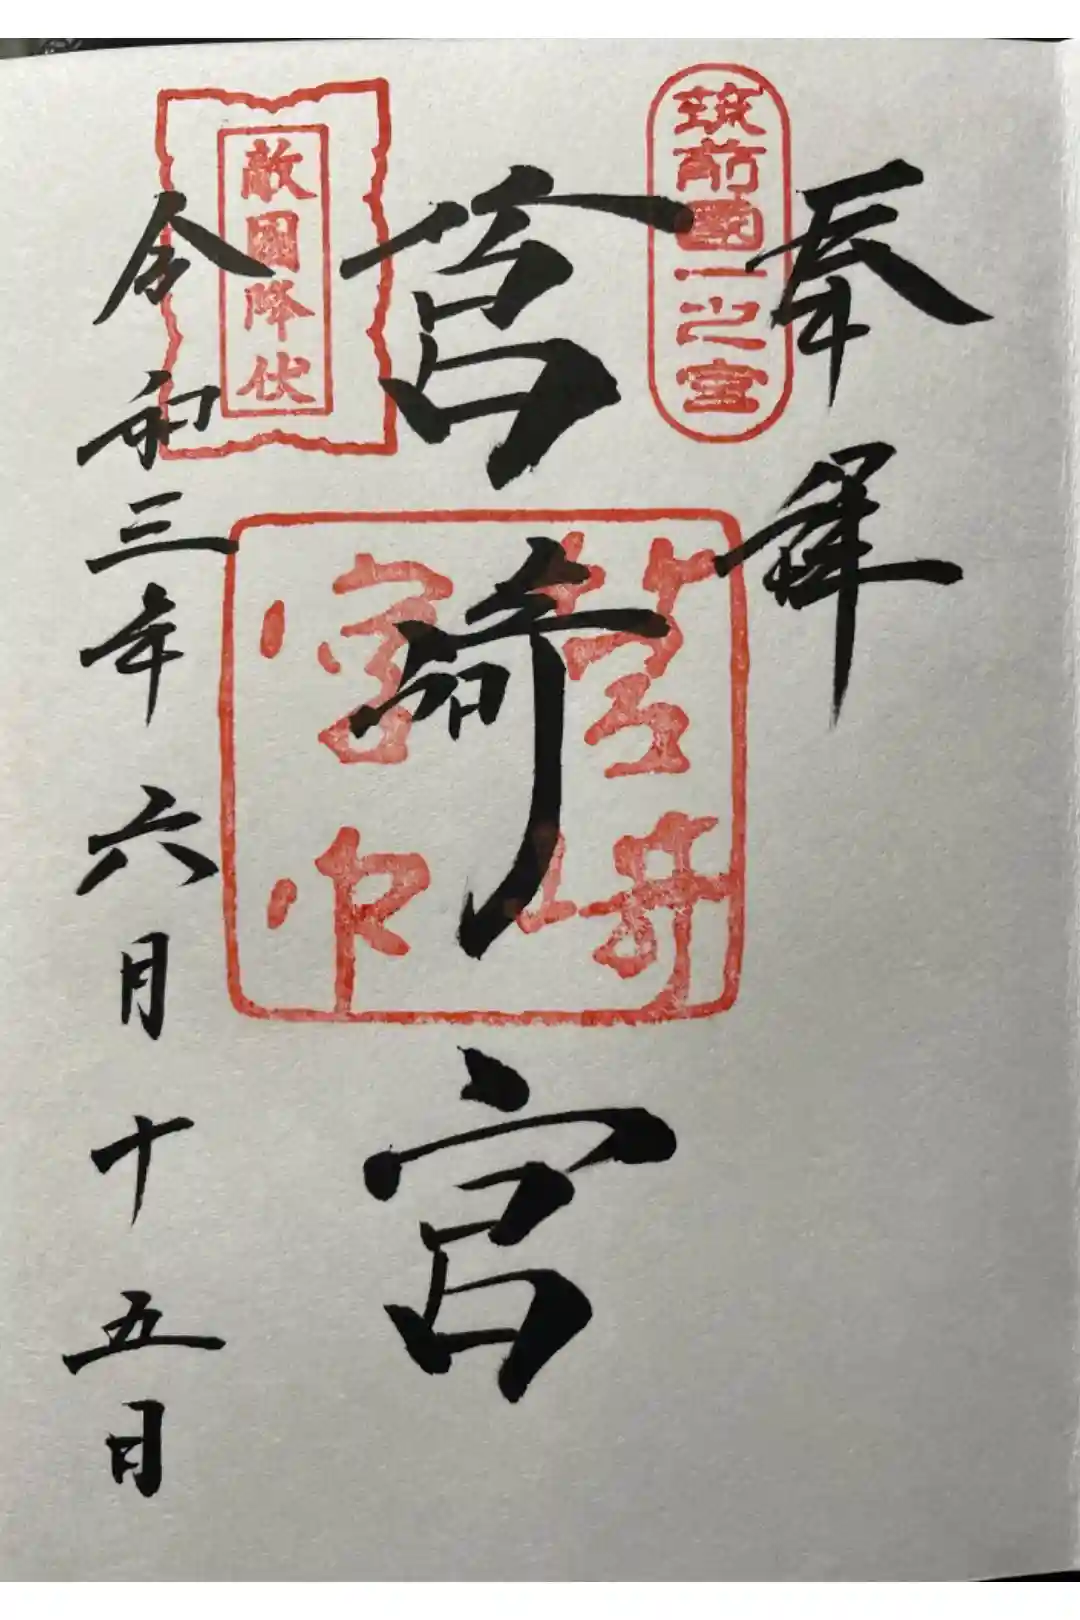 奉拝
筑前國一之宮
筥崎宮
筥崎宮印
敵國降伏
令和三年六月十五日